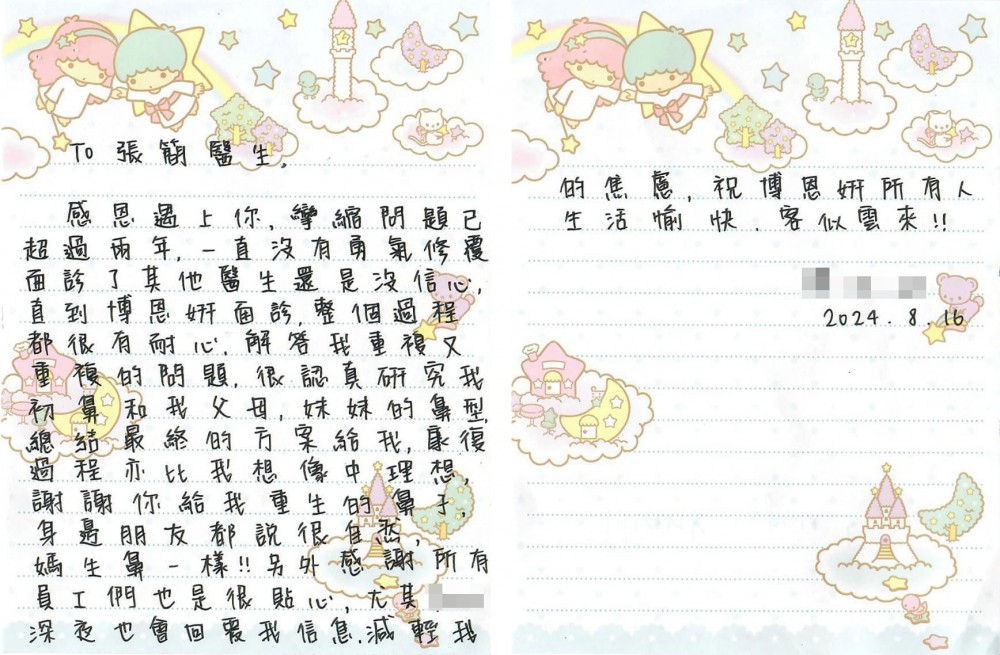 To 張簡醫生,
感恩遇上你, 攣縮問題已
超過兩年, 一直沒有勇氣修覆
面診了其他醫生還是沒信心,
直到博恩妍面診, 整個過程
都很有耐心, 解答我重複又
重複的問題, 很認真研究我
初鼻和我父母, 妹妹的鼻型,
總結最終的方案給我, 康復
過程亦比我想像中理想,
謝謝你給我重生的鼻子,
身邊朋友都說很自然,
媽生鼻一樣!! 另外感謝所有
員工們也是很貼心, 尤其
深夜也會回覆我信息, 減輕我
的焦慮, 祝博恩妍所有人
生活愉快, 客似雲來!!
2024.8.16